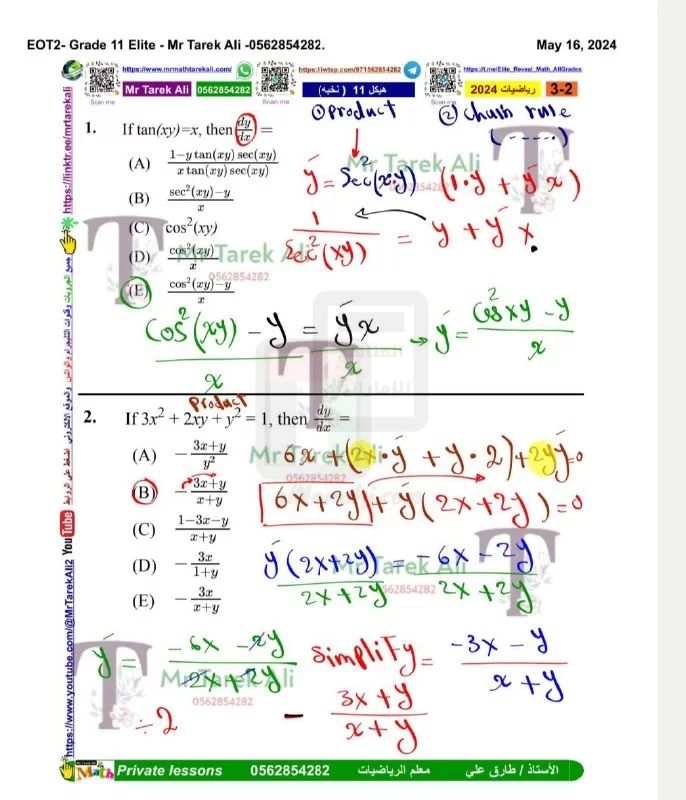 EOT2- Grade 11 Elite - Mr Tarek Ali -0562854282. May 16, 2024
https://www.mrmathtarekali.com/ https://iwtsp.com/971562854282 https://t.me/Elite_Reveal_Math_AllGrades
Mr Tarek Ali 0562854282 هيكل 11 (نخبة) رياضيات 2024 3-2
Scan me Scan me Scan me
① product ② chain rule
(-----)
1. If tan(xy)=x, then dy/dx =
(A) 1−y tan(xy) sec(xy) / x tan(xy) sec(xy)
(B) sec²(xy)−y / x
(C) cos²(xy)
(D) cos²(xy) / x
(E) cos²(xy)−y / x
Mr Tarek Ali
0562854282
ȳ = Sec²(x·y) (1·y + ȳ x)
1 / Sec²(xy) = y + ȳ x
Cos²(xy) − y / x = ȳx / x → ȳ = Cos² xy − y / x
Product
2. If 3x² + 2xy + y² = 1, then dy/dx =
(A) − 3x+y / y²
(B) − 3x+y / x+y
(C) 1−3x−y / x+y
(D) − 3x / 1+y
(E) − 3x / x+y
6x + (2x·ȳ + y·2) + 2yȳ=0
6x+2y + ȳ(2x+2y) = 0
ȳ(2x+2y) / 2x+2y = −6x−2y / 2x+2y
ȳ = −6x −2y / 2x+2y Simplify = −3x − y / x+y
÷2 − 3x+y / x+y
Mr Tarek Ali
0562854282
https://linktr.ee/mrtarekali
https://www.youtube.com/@MrTarekAli2 YouTube
Math Private lessons 0562854282 معلم الرياضيات الأستاذ / طارق علي